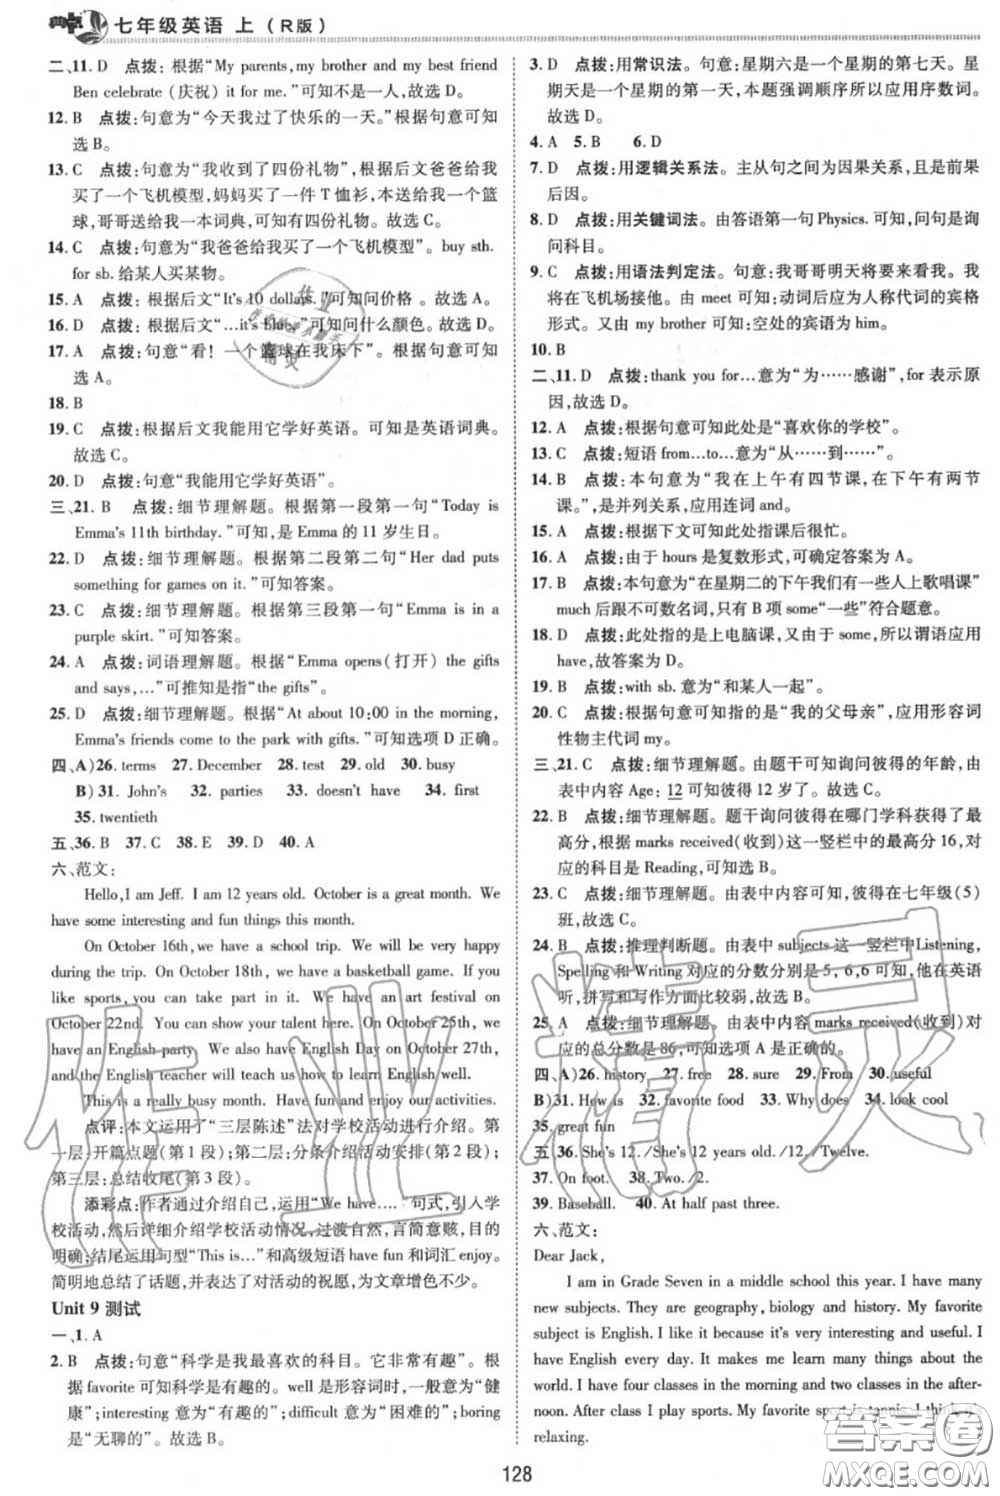 典点 七年级英语 上（R版）
二、11. D 点拨：根据“My parents, my brother and my best friend
Ben celebrate（庆祝）it for me.”可知不是一人，故选D。
12. B 点拨：句意为“今天我过了快乐的一天。”根据句意可知
选B。
13. C 点拨：句意为“我收到了四份礼物”，根据后文爸爸给我
买了一个飞机模型，妈妈买了一件T恤衫，本送给我一个篮
球，哥哥送给我一本词典，可知有四份礼物。故选C。
14. C 点拨：句意为“我爸爸给我买了一个飞机模型”。buy sth.
for sb. 给某人买某物。
15. A 点拨：根据后文“It's 10 dollars.”可知问价格。故选A。
16. D 点拨：根据后文“…it's blue.”可知问什么颜色。故选D。
17. A 点拨：句意“看！一个篮球在我床下”。根据句意可知
选A。
18. B
19. C 点拨：根据后文我能用它学好英语。可知是英语词典。
故选C。
20. D 点拨：句意“我能用它学好英语”。
三、21. B 点拨：细节理解题。根据第一段第一句“Today is
Emma's 11th birthday.”可知，是Emma的11岁生日。
22. D 点拨：细节理解题。根据第二段第二句“Her dad puts
something for games on it.”可知答案。
23. C 点拨：细节理解题。根据第三段第一句“Emma is in a
purple skirt.”可知答案。
24. A 点拨：词语理解题。根据“Emma opens（打开）the gifts
and says,…”可推知是指“the gifts”。
25. D 点拨：细节理解题。根据“At about 10:00 in the morning,
Emma's friends come to the park with gifts.”可知选项D正确。
四、A）26. terms 27. December 28. test 29. old 30. busy
B）31. John's 32. parties 33. doesn't have 34. first
35. twentieth
五、36. B 37. C 38. E 39. D 40. A
六、范文：
Hello, I am Jeff. I am 12 years old. October is a great month. We
have some interesting and fun things this month.
On October 16th, we have a school trip. We will be very happy
during the trip. On October 18th, we have a basketball game. If you
like sports, you can take part in it. We have an art festival on
October 22nd. You can show your talent here. On October 25th, we
have an English party. We also have English Day on October 27th,
and the English teacher will teach us how to learn English well.
This is a really busy month. Have fun and enjoy our activities.
点评：本文运用了“三层陈述”法对学校活动进行介绍。第
一层：开篇点题（第1段）；第二层：分条介绍活动安排（第2段）；
第三层：总结收尾（第3段）。
添彩点：作者通过介绍自己，运用“We have…. ”句式，引入学
校活动，然后详细介绍学校活动情况，过渡自然，言简意赅，目的
明确；结尾运用句型“This is…”和高级短语have fun和词汇enjoy。
简明地总结了话题，并表达了对活动的祝愿，为文章增色不少。
Unit 9 测试
一、1. A
2. B 点拨：句意“科学是我最喜欢的科目。它非常有趣”。根
据favorite可知科学是有趣的。well是形容词时，一般意为“健
康”；interesting意为“有趣的”；difficult意为“困难的”；boring
是“无聊的”。故选B。
3. D 点拨：用常识法。句意：星期六是一个星期的第七天。星
期天是一个星期的第一天，本题强调顺序所以应用序数词。
故选D。
4. A 5. B 6. D
7. D 点拨：用逻辑关系法。主从句之间为因果关系，且前果
后因。
8. D 点拨：用关键词法。由答语第一句Physics. 可知，问句是询
问科目。
9. C 点拨：用语法判定法。句意：我哥哥明天将要来看我。我
将在飞机场接他。由meet可知：动词后应为人称代词的宾格
形式。又由my brother可知：空处的宾语为him。
10. B
二、11. D 点拨：thank you for…意为“为……感谢”，for表示原
因，故选D。
12. A 点拨：根据句意可知此处是“喜欢你的学校”。
13. C 点拨：短语from…to…意为“从……到……”。
14. B 点拨：句意为“我在上午有四节课，在下午有两节
课。”，是并列关系，应用连词and。
15. A 点拨：根据下文可知此处指课后很忙。
16. A 点拨：由于hours是复数形式，可确定答案为A。
17. B 点拨：本句意为“在星期二的下午我们有一些人上歌唱课”
much后跟不可数名词，只有B项some“一些”符合题意。
18. D 点拨：此处指的是上电脑课，又由于some，所以谓语应用
have，故答案为D。
19. B 点拨：with sb. 意为“和某人一起”。
20. C 点拨：根据句意可知指的是“我的父母亲”，应用形容词
性物主代词my。
三、21. C 点拨：细节理解题。本题询问彼得的年龄，由
表中内容Age：12可知彼得12岁了。故选C。
22. B 点拨：细节理解题。题干询问彼得在哪门学科获得了最
高分，根据marks received（收到）这一竖栏中的最高分16，对
应的科目是Reading，可知选B。
23. C 点拨：细节理解题。由表中内容可知，彼得在七年级（5）
班，故选C。
24. B 点拨：推理判断题。由表中subjects这一竖栏中Listening,
Spelling和Writing对应的分数分别是5，6，6可知，他在英语
听，拼写和写作方面比较弱，故选B。
25. A 点拨：细节理解题。由表中内容marks received（收到）对
应的总分数是86，可知选项A是正确的。
四、A）26. history 27. free 28. sure 29. From 30. useful
B）31. How is 32. favorite food 33. Why does 34. look cool
35. great fun
五、36. She's 12. /She's 12 years old. /12. /Twelve.
37. On foot. 38. Two. /2.
39. Baseball. 40. At half past three.
六、范文：
Dear Jack,
I am in Grade Seven in a middle school this year. I have many
new subjects. They are geography, biology and history. My favorite
subject is English. I like it because it's very interesting and useful. I
have English every day. It makes me learn many things about the
world. I have four classes in the morning and two classes in the after-
noon. After class I play sports. My favorite sport is tennis. I think it's
relaxing.
128
作业精灵
答案圈
MXQE.COM